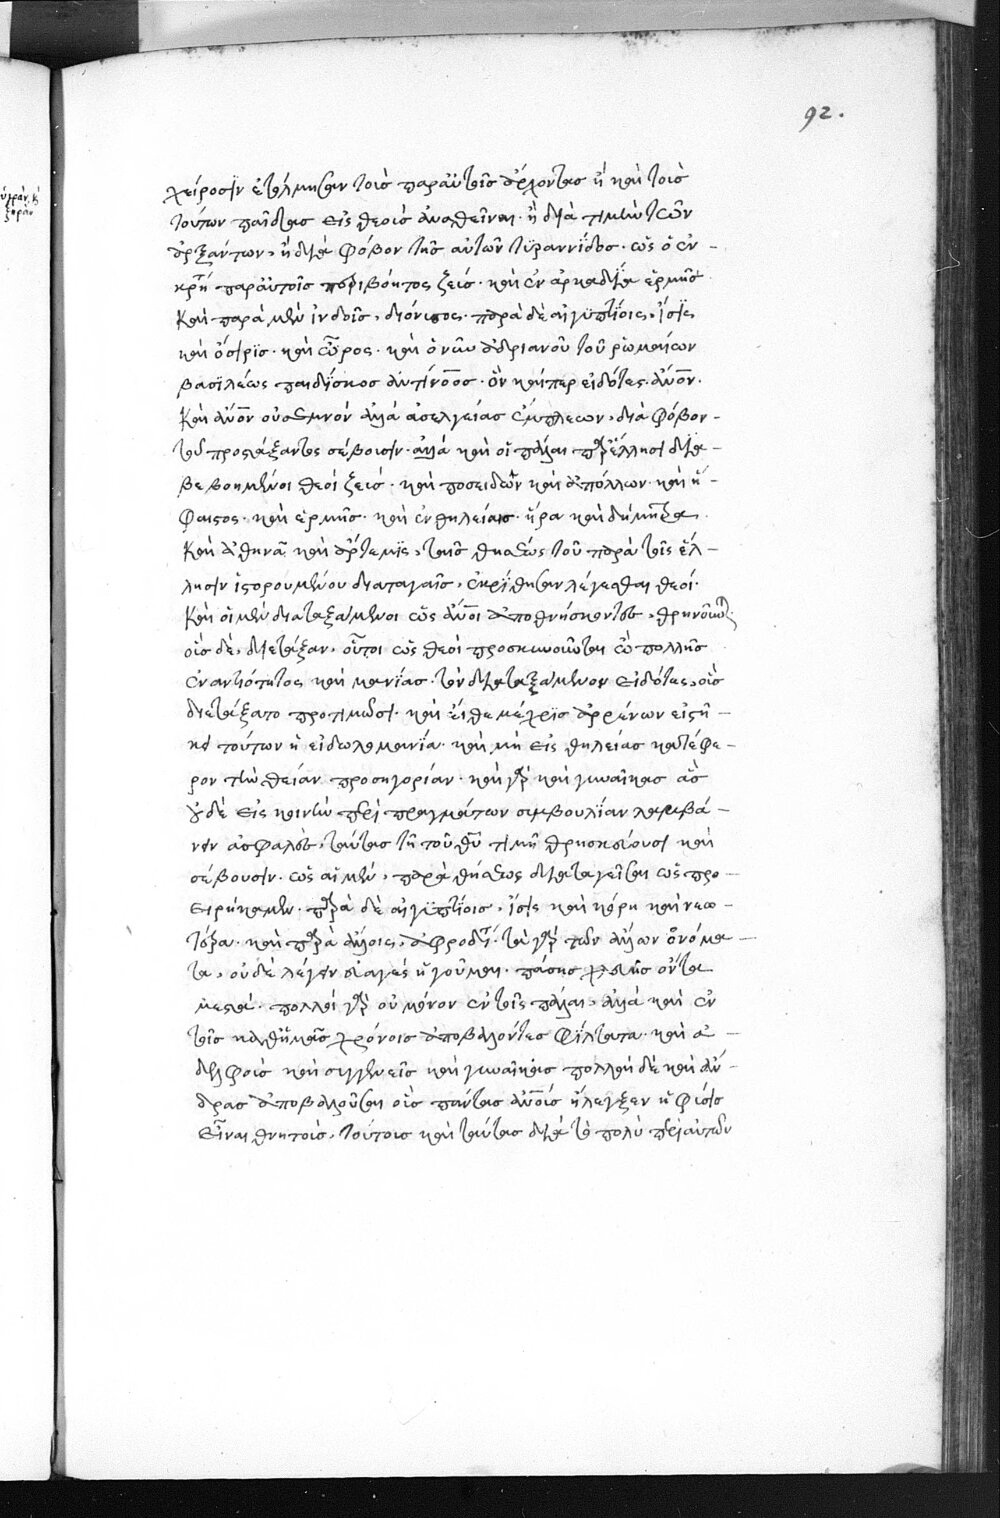 ὑγρὰν, κ
ξηρὰν
92.
χείροσιν ἐτόλμησαν τοὺς παρ' αὐτοῖς ἄρχοντας ἢ καὶ τοὺς
τούτων παῖδας εἰς θεοὺς ἀναθεῖναι· ἢ διὰ τιμὴν τῶν
ἀρξάντων, ἢ διὰ φόβον τῆς αὐτῶν τυραννίδος· ὡς ὁ ἐν -
κρήτη παρ' αὐτοῖς περιβόητος ζεύς· καὶ ἐν ἀρκαδία ἑρμῆς·
Καὶ παρὰ μὲν ἰνδοῖς, διόνυσος· παρὰ δὲ αἰγυπτίοις, ἴσις
καὶ ὄσιρις· καὶ ὧρος· καὶ ὁ νῦν ἀδριανοῦ τοῦ ῥωμαίων
βασιλέως παιδίσκος ἀντίνοος· ὃν καίπερ εἰδότες ἄνον·
Καὶ ἄνον οὐ σεμνὸν ἀλλὰ ἀσελγείας ἔμπλεων, διὰ φόβον -
τοῦ προστάξαντος σέβουσιν· ἀλλὰ καὶ οἱ πάλαι παρ' ἕλλησι δια -
βεβοημένοι θεοὶ ζεύς· καὶ ποσειδῶν καὶ ἀπόλλων· καὶ ἥ -
φαιστος· καὶ ἑρμῆς· καὶ ἐν θηλείαις· ἥρα καὶ δήμητρα
Καὶ ἀθηνᾶ καὶ ἄρτεμις, ταῖς θησέως τοῦ παρὰ τοῖς ἕλ -
λησιν ἱστορουμένου διαταγαῖς, ἐκρίθησαν λέγεσθαι θεοί·
Καὶ οἱ μὲν διαταξάμενοι ὡς ἄνοι ἀποθνήσκοντες, θρηνοῦνται·
οὓς δὲ, διετάξαν, οὗτοι ὡς θεοὶ προσκυνοῦνται ὦ πολλῆς
ἐναντιότητος καὶ μανίας· τὸν διαταξάμενον εἰδότες, οὓς
διετάξατο προτιμῶσι· καὶ εἴθε μέχρις ἀρρένων εἱστή -
κει τούτων ἡ εἰδωλομανία· καὶ μὴ εἰς θηλείας κατέφε -
ρον τὴν θείαν προσηγορίαν· καὶ γὰρ καὶ γυναῖκας ἃς
οὐδὲ εἰς κοινὴν περὶ πραγμάτων συμβουλίαν λαμβά -
νειν ἀσφαλὲς, ταύτας τῆ τοῦ θῦ τιμῆ θρησκεύουσι καὶ
σέβουσιν· ὡς αἱ μὲν, παρὰ θησέως διαταγεῖσαι ὡς προ -
ειρήκαμεν· παρὰ δὲ αἰγυπτίοις, ἴσις καὶ κόρη καὶ νεω -
τέρα· καὶ παρὰ ἄλλοις, ἀφροδίτη· τὰ γὰρ τῶν ἄλλων ὀνόμα -
τα, οὐδὲ λέγειν εὐαγὲς ἡγοῦμαι· πάσης χλεύης ὄντα
μεστά· πολλοὶ γὰρ οὐ μόνον ἐν τοῖς πάλαι, ἀλλὰ καὶ ἐν
τοῖς καθ' ἡμᾶς χρόνοις ἀποβαλόντες φίλτατα· καὶ ἀ -
δελφοὺς καὶ συγγενεῖς καὶ γυναῖκας πολλαὶ δὲ καὶ ἄν -
δρας ἀποβαλοῦσαι οὓς πάντας ἄνους ἤλεγξεν ἡ φύσις
εἶναι θνητοὺς, τούτους καὶ ταύτας διὰ τὸ πολὺ περὶ αὐτῶν